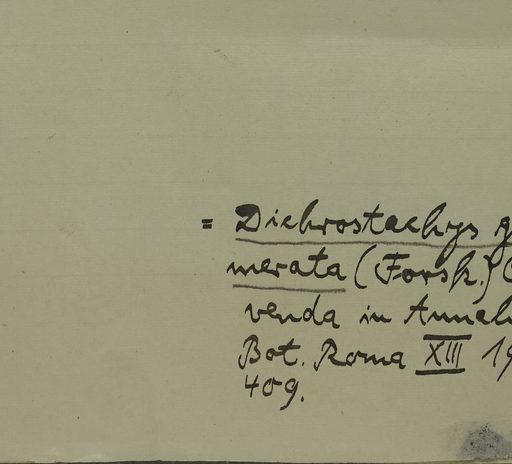 = Dichrostachys g
merata (Forsk.) C
venda in Annal
Bot. Roma XIII 19
409.